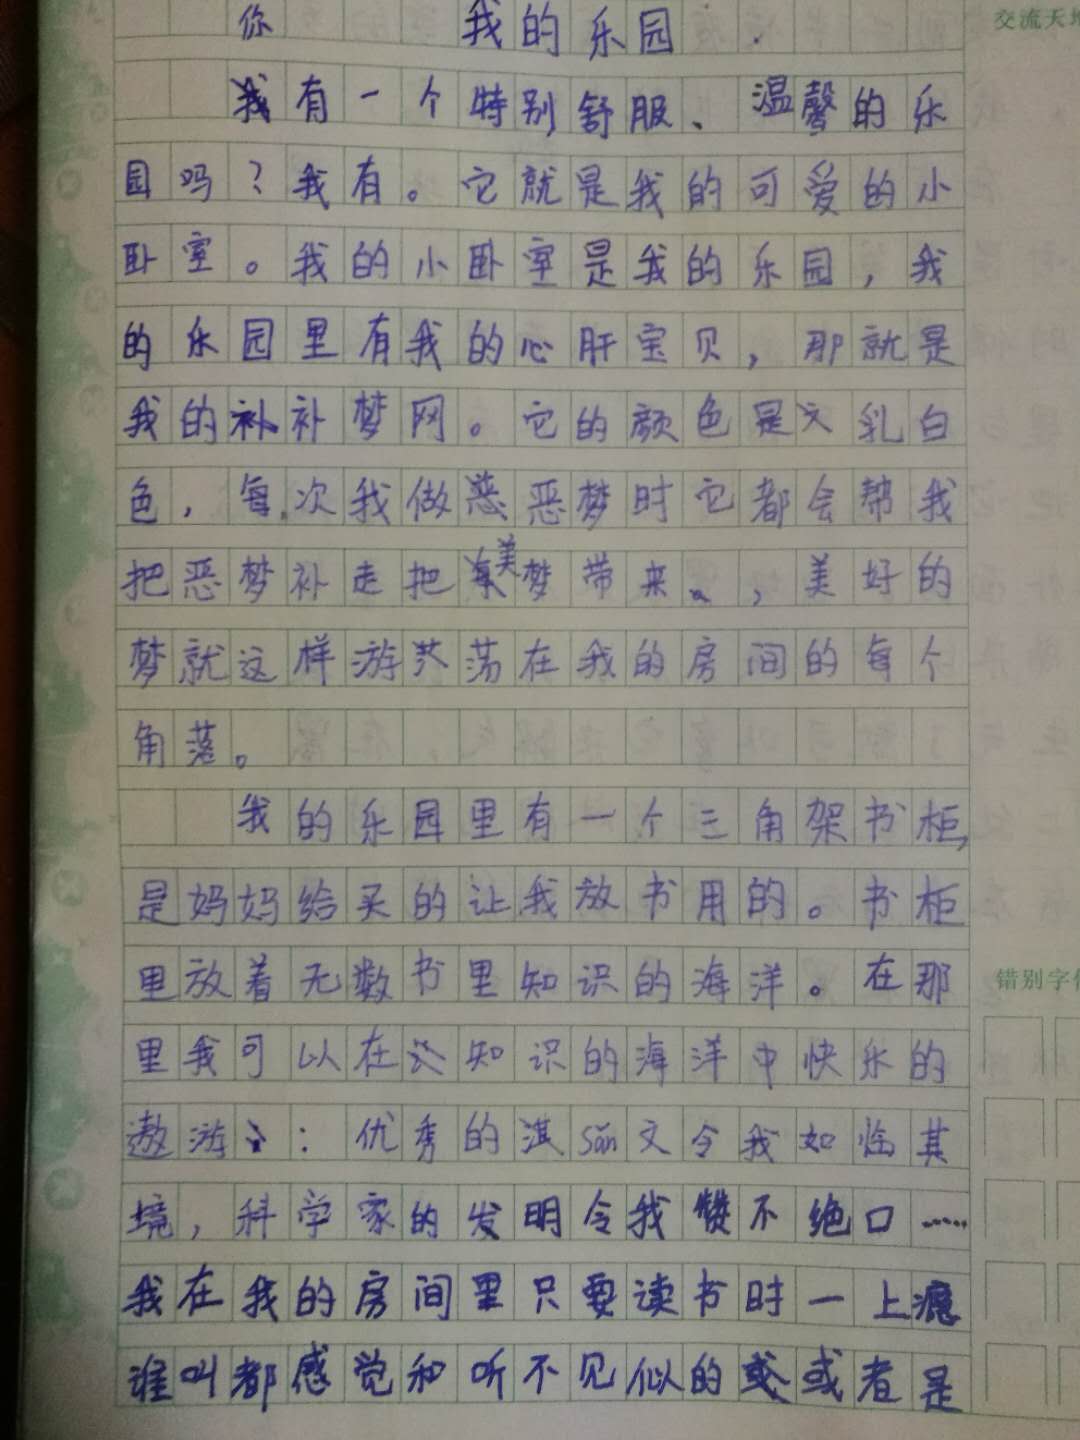 你 我的乐园 交流天地
我有一个特别舒服、温馨的乐
园吗?我有。它就是我的可爱的小
卧室。我的小卧室是我的乐园,我
的乐园里有我的心肝宝贝,那就是
我的补补梦网。它的颜色是乳白
色,每次我做恶梦时它都会帮我
把恶梦补走把美梦带来,美好的
梦就这样游荡在我的房间的每个
角落。
我的乐园里有一个三角架书柜,
是妈妈给买的让我放书用的。书柜
里放着无数书里知识的海洋。在那
里我可以在知识的海洋中快乐的
遨游:优秀的sǎn文令我如临其
境,科学家的发明令我赞不绝口……
我在我的房间里只要读书时一上瘾
谁叫都感觉和听不见似的或者是
错别字